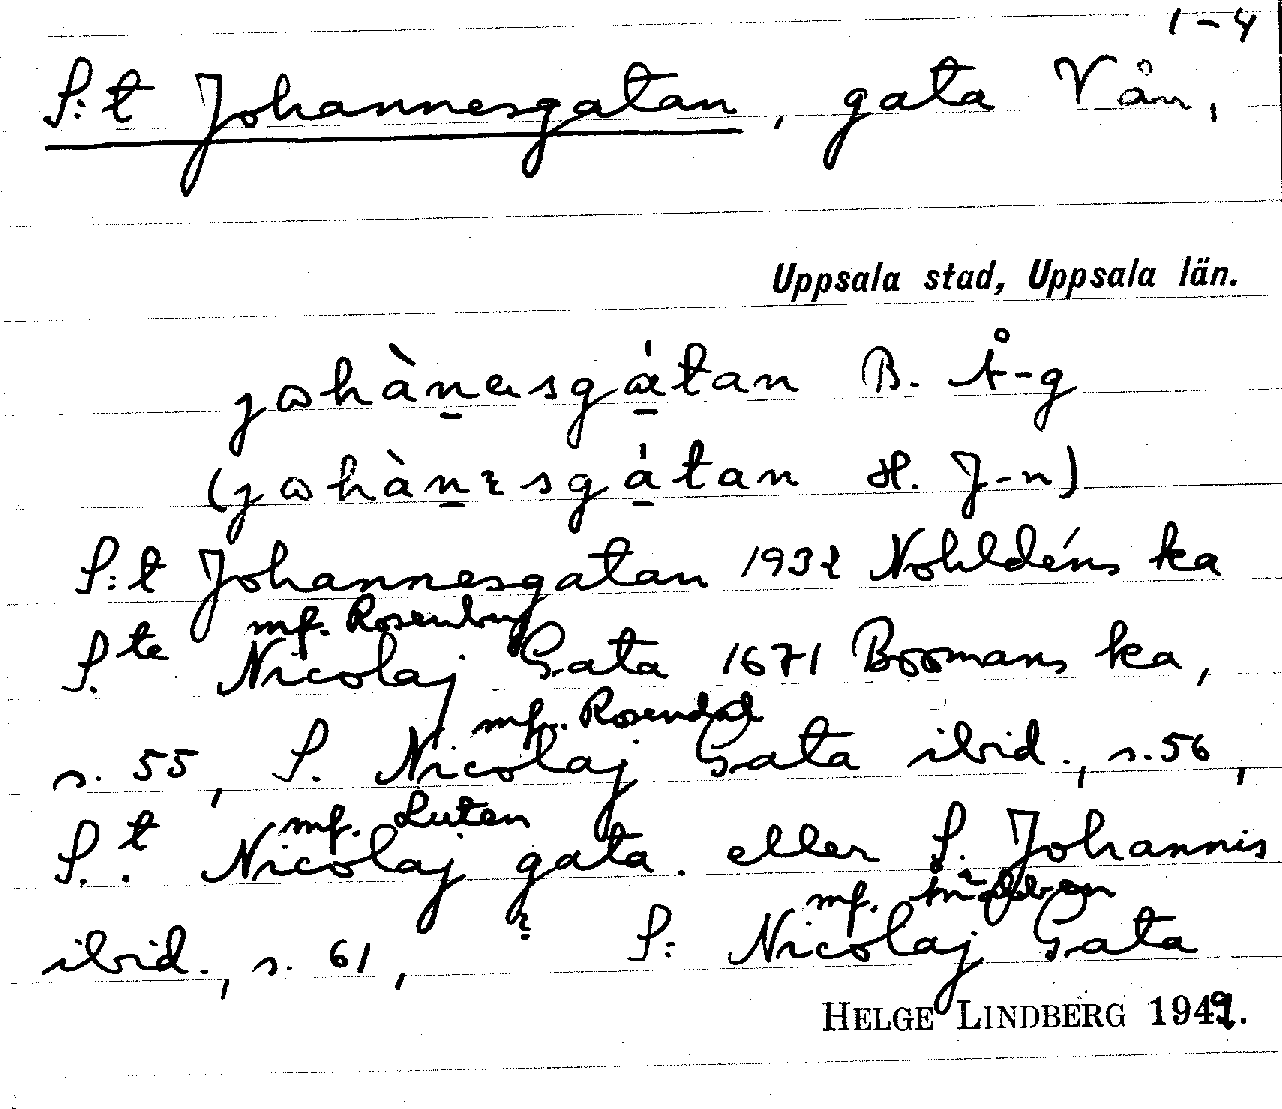 1-4
S:t Johannesgatan, gata Vån,
Uppsala stad, Uppsala län.
jωhànεsgátan B. Å-g
(jωhànɛsgátan H. J-n)
S:t Johannesgatan 1932 Nohldéns ka
mf. Rosenberg
S.te Nicolaj Gata 1671 Boomans ka,
mf. Rosendal
s. 55, S. Nicolaj Gata ibid., s. 56,
mf. Luten
S.t Nicolaj gata eller S. Johannis
mf.
ibid., s. 61, S: Nicolaj Gata
HELGE LINDBERG 1949.